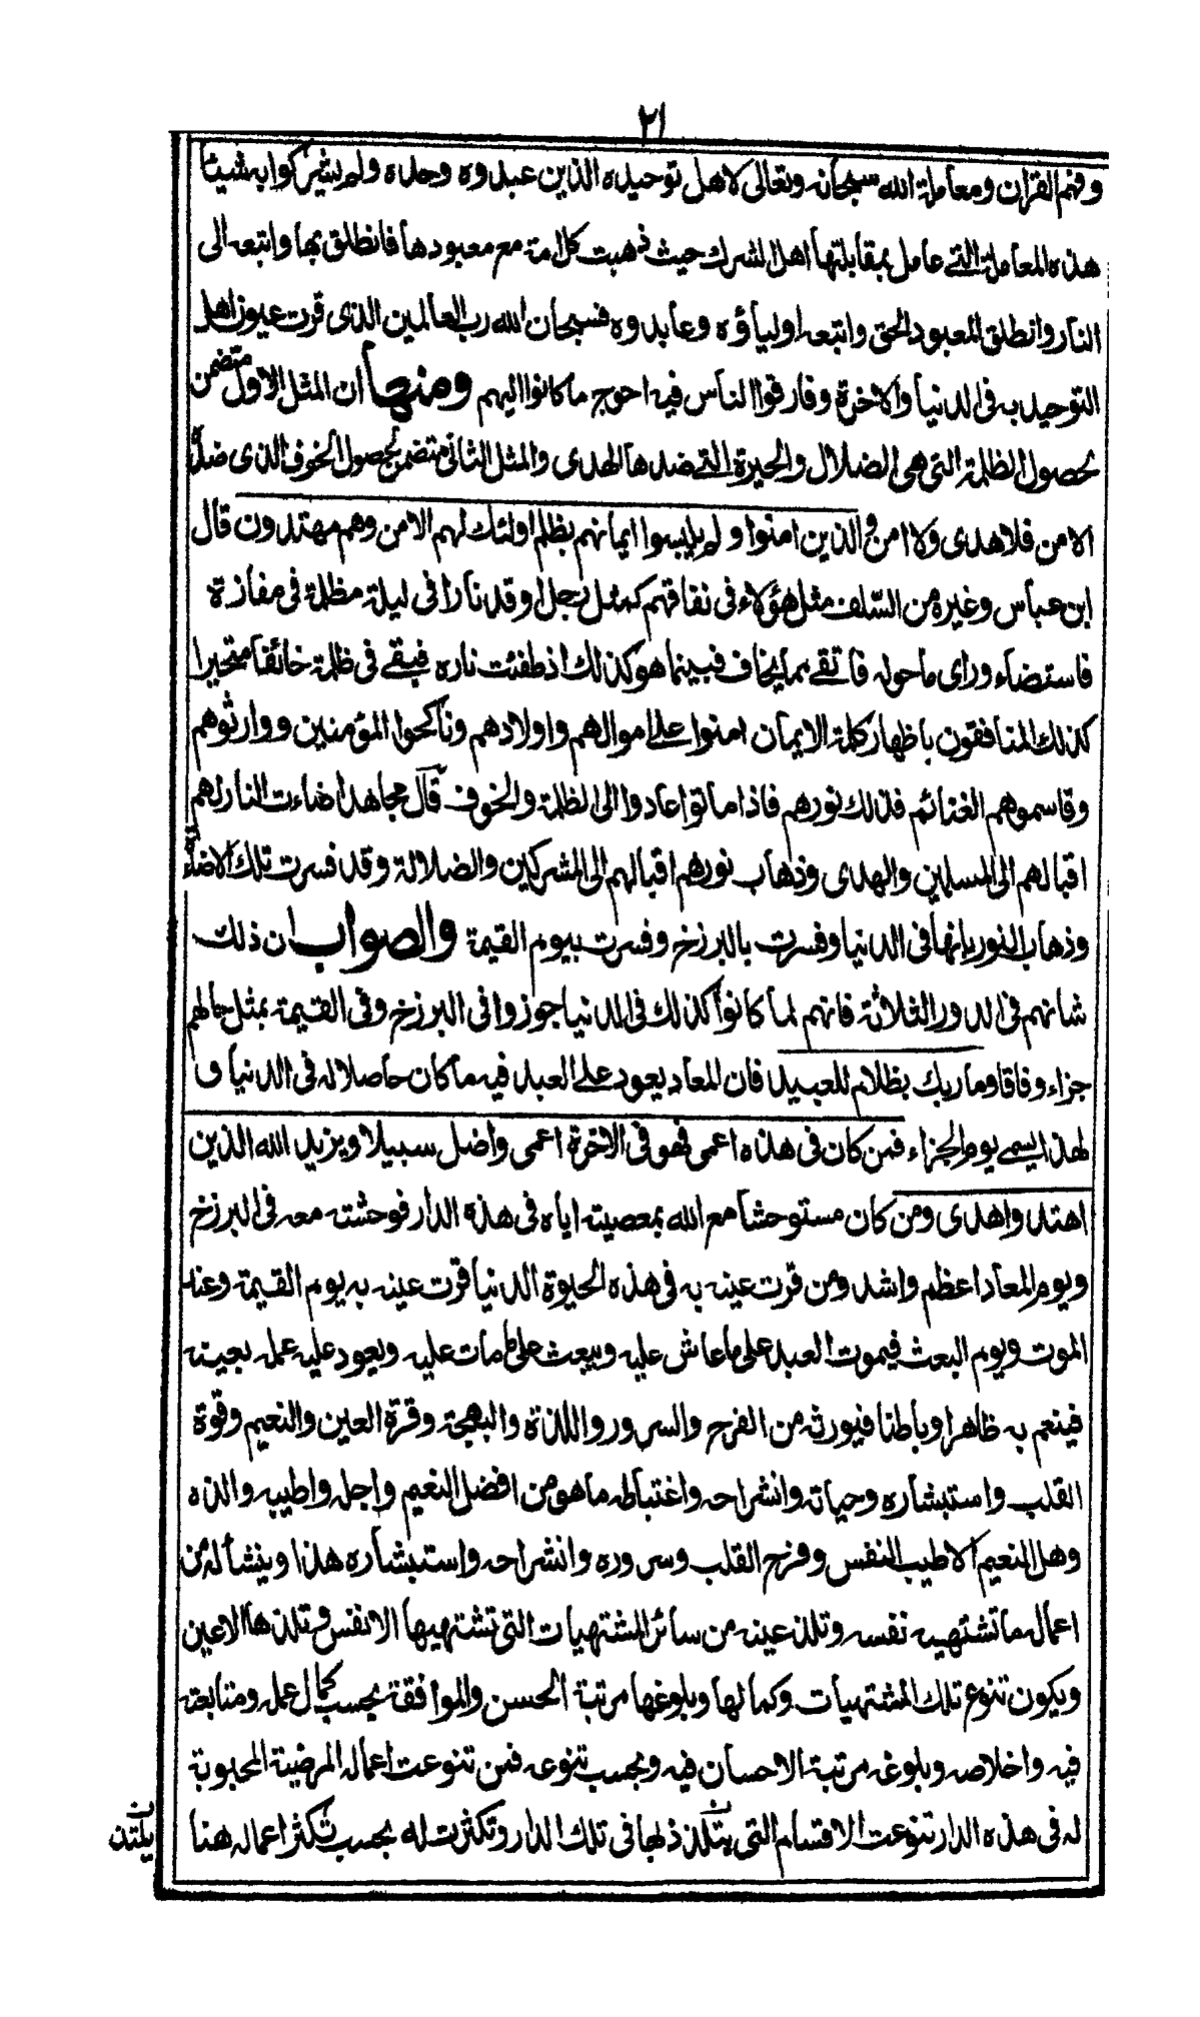 ٢١
وفهم القران ومعاملة الله سبحانه وتعالى لاهل توحيده الذين عبدوه وحده ولم يشركوا به شيئا
هذه المعاملة التى عامل بمقابلتها اهل الشرك حيث ذهبت كل امة مع معبودها فانطلق بها واتبعه الى
النار وانطلق المعبود الحق واتبعه اولياؤه وعابدوه فسبحان الله رب العالمين الذى قرت عيون اهل
التوحيد به فى الدنيا والاخرة وفارقوا الناس فيه احوج ما كانوا اليهم ومنها ان المثل الاول متضمن
لحصول الظلمة التى هى الضلال والحيرة التى ضدها الهدى والمثل الثانى متضمن لحصول الخوف الذى ضده
الامن فلا هدى ولا امن والذين امنوا ولم يلبسوا ايمانهم بظلم اولئك لهم الامن وهم مهتدون قال
ابن عباس وغيره من السّلف مثل هؤلاء فى نفاقهم كمثل رجل اوقد نارا فى ليلة مظلمة فى مفازة
فاستضاء وراى ما حوله فاتقى مما يخاف فبينما هو كذلك اذ طفئت ناره فبقى فى ظلمة خائفا متحيرا
كذلك المنافقون باظهار كلمة الايمان امنوا على اموالهم واولادهم وناكحوا المؤمنين ووارثوهم
وقاسموهم الغنائم فذلك نورهم فاذا ماتوا عادوا الى الظلمة والخوف قال مجاهد اضاءت النار لهم
اقبالهم الى المسلمين والهدى وذهاب نورهم اقبالهم الى المشركين والضلالة وقد فسرت تلك الاضاءة
وذهاب النور بانها فى الدنيا وفسرت بالبرزخ وفسرت بيوم القيمة والصواب ان ذلك
شانهم فى الدور الثلاثة فانهم لما كانوا كذلك فى الدنيا جوزوا فى البرزخ وفى القيمة بمثل حالهم
جزاء وفاقا وما ربك بظلام للعبيد فان المعاد يعود على العبد فيه ما كان حاصلا له فى الدنيا و
لهذا يسمى يوم الجزاء فمن كان فى هذه اعمى فهو فى الاخرة اعمى واضل سبيلا ويزيد الله الذين
اهتدوا هدى ومن كان مستوحشا مع الله بمعصيته اياه فى هذه الدار فوحشته معه فى البرزخ
ويوم المعاد اعظم واشد ومن قرت عينه به فى هذه الحيوة الدنيا قرت عينه به يوم القيمة وعند
الموت ويوم البعث فيموت العبد على ما عاش عليه ويبعث على ما مات عليه ويعود عليه عمله بعينه
فينعم به ظاهرا وباطنا فيورثه من الفرح والسرور واللذة والبهجة وقرة العين والنعيم وقوة
القلب واستبشاره وحياته وانشراحه واغتباطه ما هو من افضل النعيم واجله واطيبه والذه
وهل النعيم الا طيب النفس وفرح القلب وسروره وانشراحه واستبشاره هذا وينشأ له من
اعماله ما تشتهيه نفسه وتلذ عينه من سائر المشتهيات التى تشتهيها الانفس وتلذها الاعين
ويكون تنوع تلك المشتهيات وكمالها وبلوغها مرتبة الحسن والموافقة بحسب كمال عمله ومتابعته
فيه واخلاصه وبلوغه مرتبة الاحسان فيه وبحسب تنوعه فمن تنوعت اعماله المرضية المحبوبة
له فى هذه الدار تنوعت الاقسام التى يتلذذ بها فى تلك الدار وتكثرت له بحسب تكثر اعماله هنا
يلتذ